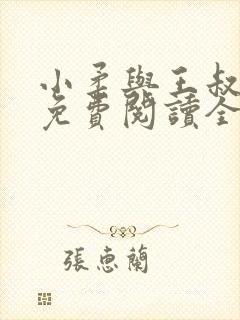 小矛與王叔
免費閱讀全
張恵蘭